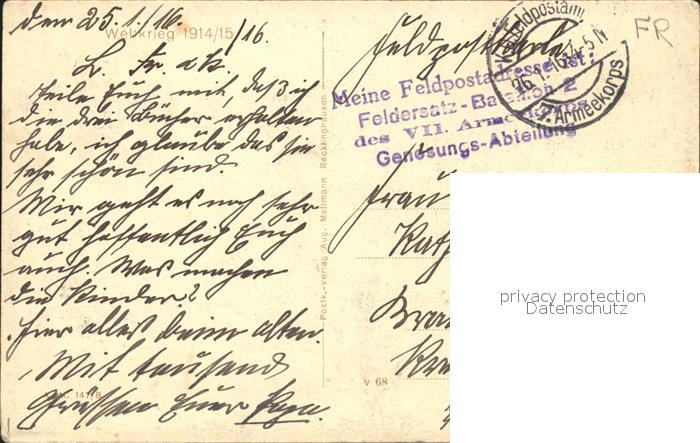 den 25.1./16.
Weltkrieg 1914/15 /16.
L. Fr. u. K.
Teile Euch mit, daß ich
die drei Bücher erhalten
habe, ich glaube das sie
sehr schön sind.
Mir geht es noch sehr
gut hoffentlich Euch
auch. Was machen
die Kinder?
Hier alles beim alten.
Mit tausend
Grüssen Euer Papa.
Postk.-Verlag Aug. Mallmann Recklinghausen
Feldpostkarte
Meine Feldpostadresse ist:
Feldersatz-Bataillon 2
des VII. Armeekorps
Genesungs-Abteilung
Feldpostamt
26.1.16. 4-5 N
7. Armeekorps
FR
Frau
V 68
privacy protection
Datenschutz